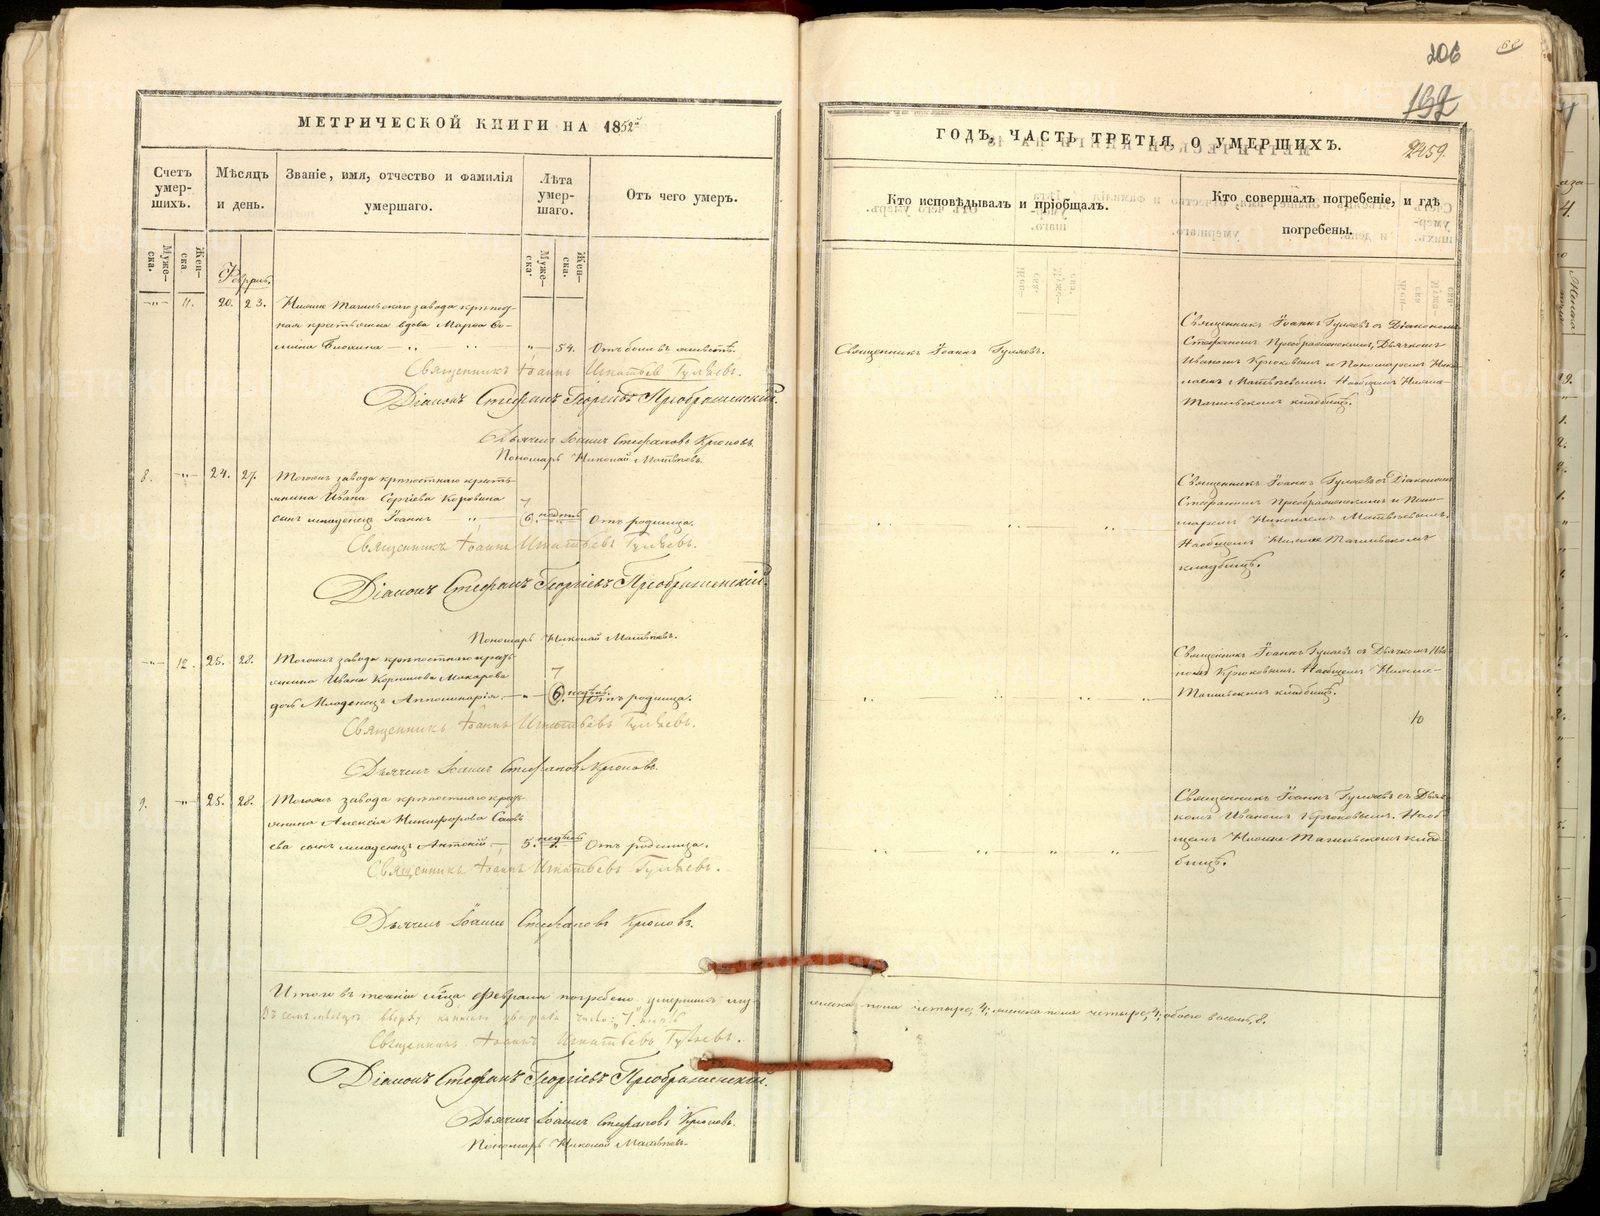 206
132
2459.
МЕТРИЧЕСКОЙ КНИГИ НА 1852й
ГОДЪ, ЧАСТЬ ТРЕТІЯ, О УМЕРШИХЪ.
Счетъ умер-
шихъ.
Мѣсяцъ
и день.
Званіе, имя, отчество и фамилія
умершаго.
Лѣта
умер-
шаго.
Отъ чего умеръ.
Кто исповѣдывалъ и пріобщалъ.
Кто совершалъ погребеніе, и гдѣ
погребены.
Муже-
ска.
Жен-
ска
Муже-
ска.
Жен-
ска.
11. 20. 23.
Нижне Тагильскаго завода крѣпост-
ная крестьянка вдова Марѳа
54. Отъ боли въ животѣ.
Священникъ Іоаннъ Игнатьевъ Гуляевъ.
Діаконъ Стефанъ Георгіевъ Преображенскій.
Дьячекъ Іоаннъ Стефановъ Крюковъ.
Пономарь Николай Матвѣевъ.
Священникъ Іоаннъ Гуляевъ.
Священникъ Іоаннъ Гуляевъ съ Діакономъ
Стефаномъ Преображенскимъ, Дьячкомъ
Иваномъ Крюковымъ и Пономаремъ Нико-
лаемъ Матвѣевымъ. На общемъ Нижне-
Тагильскомъ кладбищѣ.
8. 24. 27.
Тогожъ завода крѣпостнаго кресть-
янина Ивана Сергіева Коровина
сынъ младенецъ Іоаннъ
6. недѣль Отъ родимца.
Священникъ Іоаннъ Игнатьевъ Гуляевъ.
Діаконъ Стефанъ Георгіевъ Преображенскій.
Пономарь Николай Матвѣевъ.
Священникъ Іоаннъ Гуляевъ съ Діакономъ
Стефаномъ Преображенскимъ и Поно-
маремъ Николаемъ Матвѣевымъ.
На общемъ Нижне Тагильскомъ
кладбищѣ.
12. 25. 28.
Тогожъ завода крѣпостнаго кресть-
янина Ивана Корнилова Макарова
дочь Младенецъ Апполинарія.
7
6. недѣль. Отъ родимца.
Священникъ Іоаннъ Игнатьевъ Гуляевъ.
Дьячекъ Іоаннъ Стефановъ Крюковъ.
Священникъ Іоаннъ Гуляевъ съ Дьячкомъ Ива-
номъ Крюковымъ. На общемъ Нижне-
Тагильскомъ кладбищѣ.
10
9. 25. 28.
Тогожъ завода крѣпостнаго кресть-
янина Алексія Никифорова
сынъ младенецъ Антоній
5. недѣль Отъ родимца.
Священникъ Іоаннъ Игнатьевъ Гуляевъ.
Дьячекъ Іоаннъ Стефановъ Крюковъ.
Священникъ Іоаннъ Гуляевъ съ Дьяч-
комъ Иваномъ Крюковымъ. На об-
щемъ Нижне Тагильскомъ клад-
бищѣ.
Итого въ теченіи мѣсяца Февраля погребено умершихъ му-
жеска пола четыре, 4; женска пола четыре, 4; обоего восемь, 8.
Священникъ Іоаннъ Игнатьевъ Гуляевъ.
Діаконъ Стефанъ Георгіевъ Преображенскій.
Дьячекъ Іоаннъ Стефановъ Крюковъ.
Пономарь Николай Матвѣевъ.